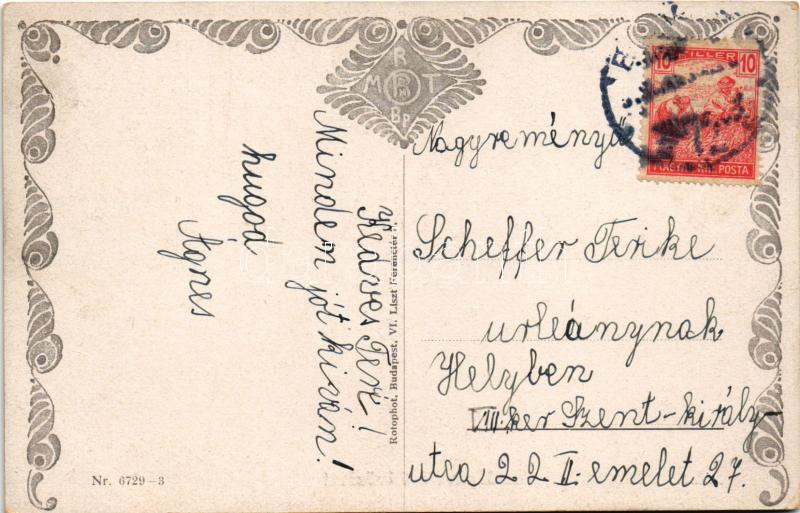 Kedves Teri!
Minden jót kiván!
hugod
Ágnes
R
M RM T
Bp
Rotophot, Budapest, VI. Liszt Ferenc-tér
Nr. 6729-3
10 FILLER 10
MAGYAR KIR. POSTA
Nagyreményű
Scheffer Terike
urleánynak
Helyben
VIII. ker Szent-király-
utca 22 II. emelet 27.